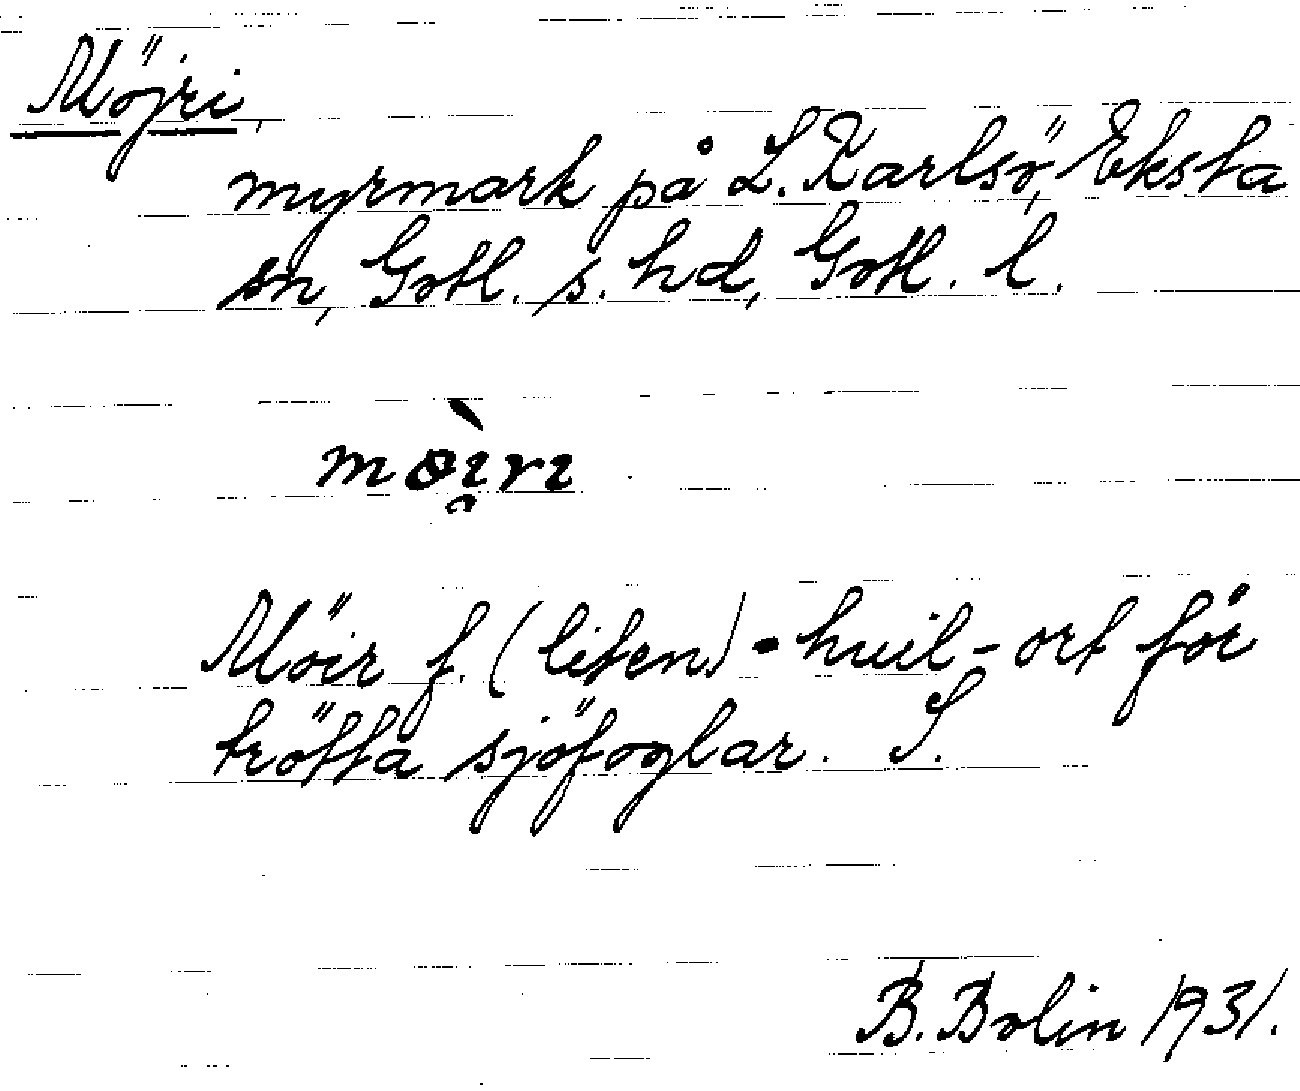 Möjri,
myrmark på L. Karlsö, Eksta
sn, Gotl. s. hd, Gotl. l.
möì̯rı
Möir f. (liten) - huil-ort för
trötta sjöfoglar. S.
B. Bolin 1931.